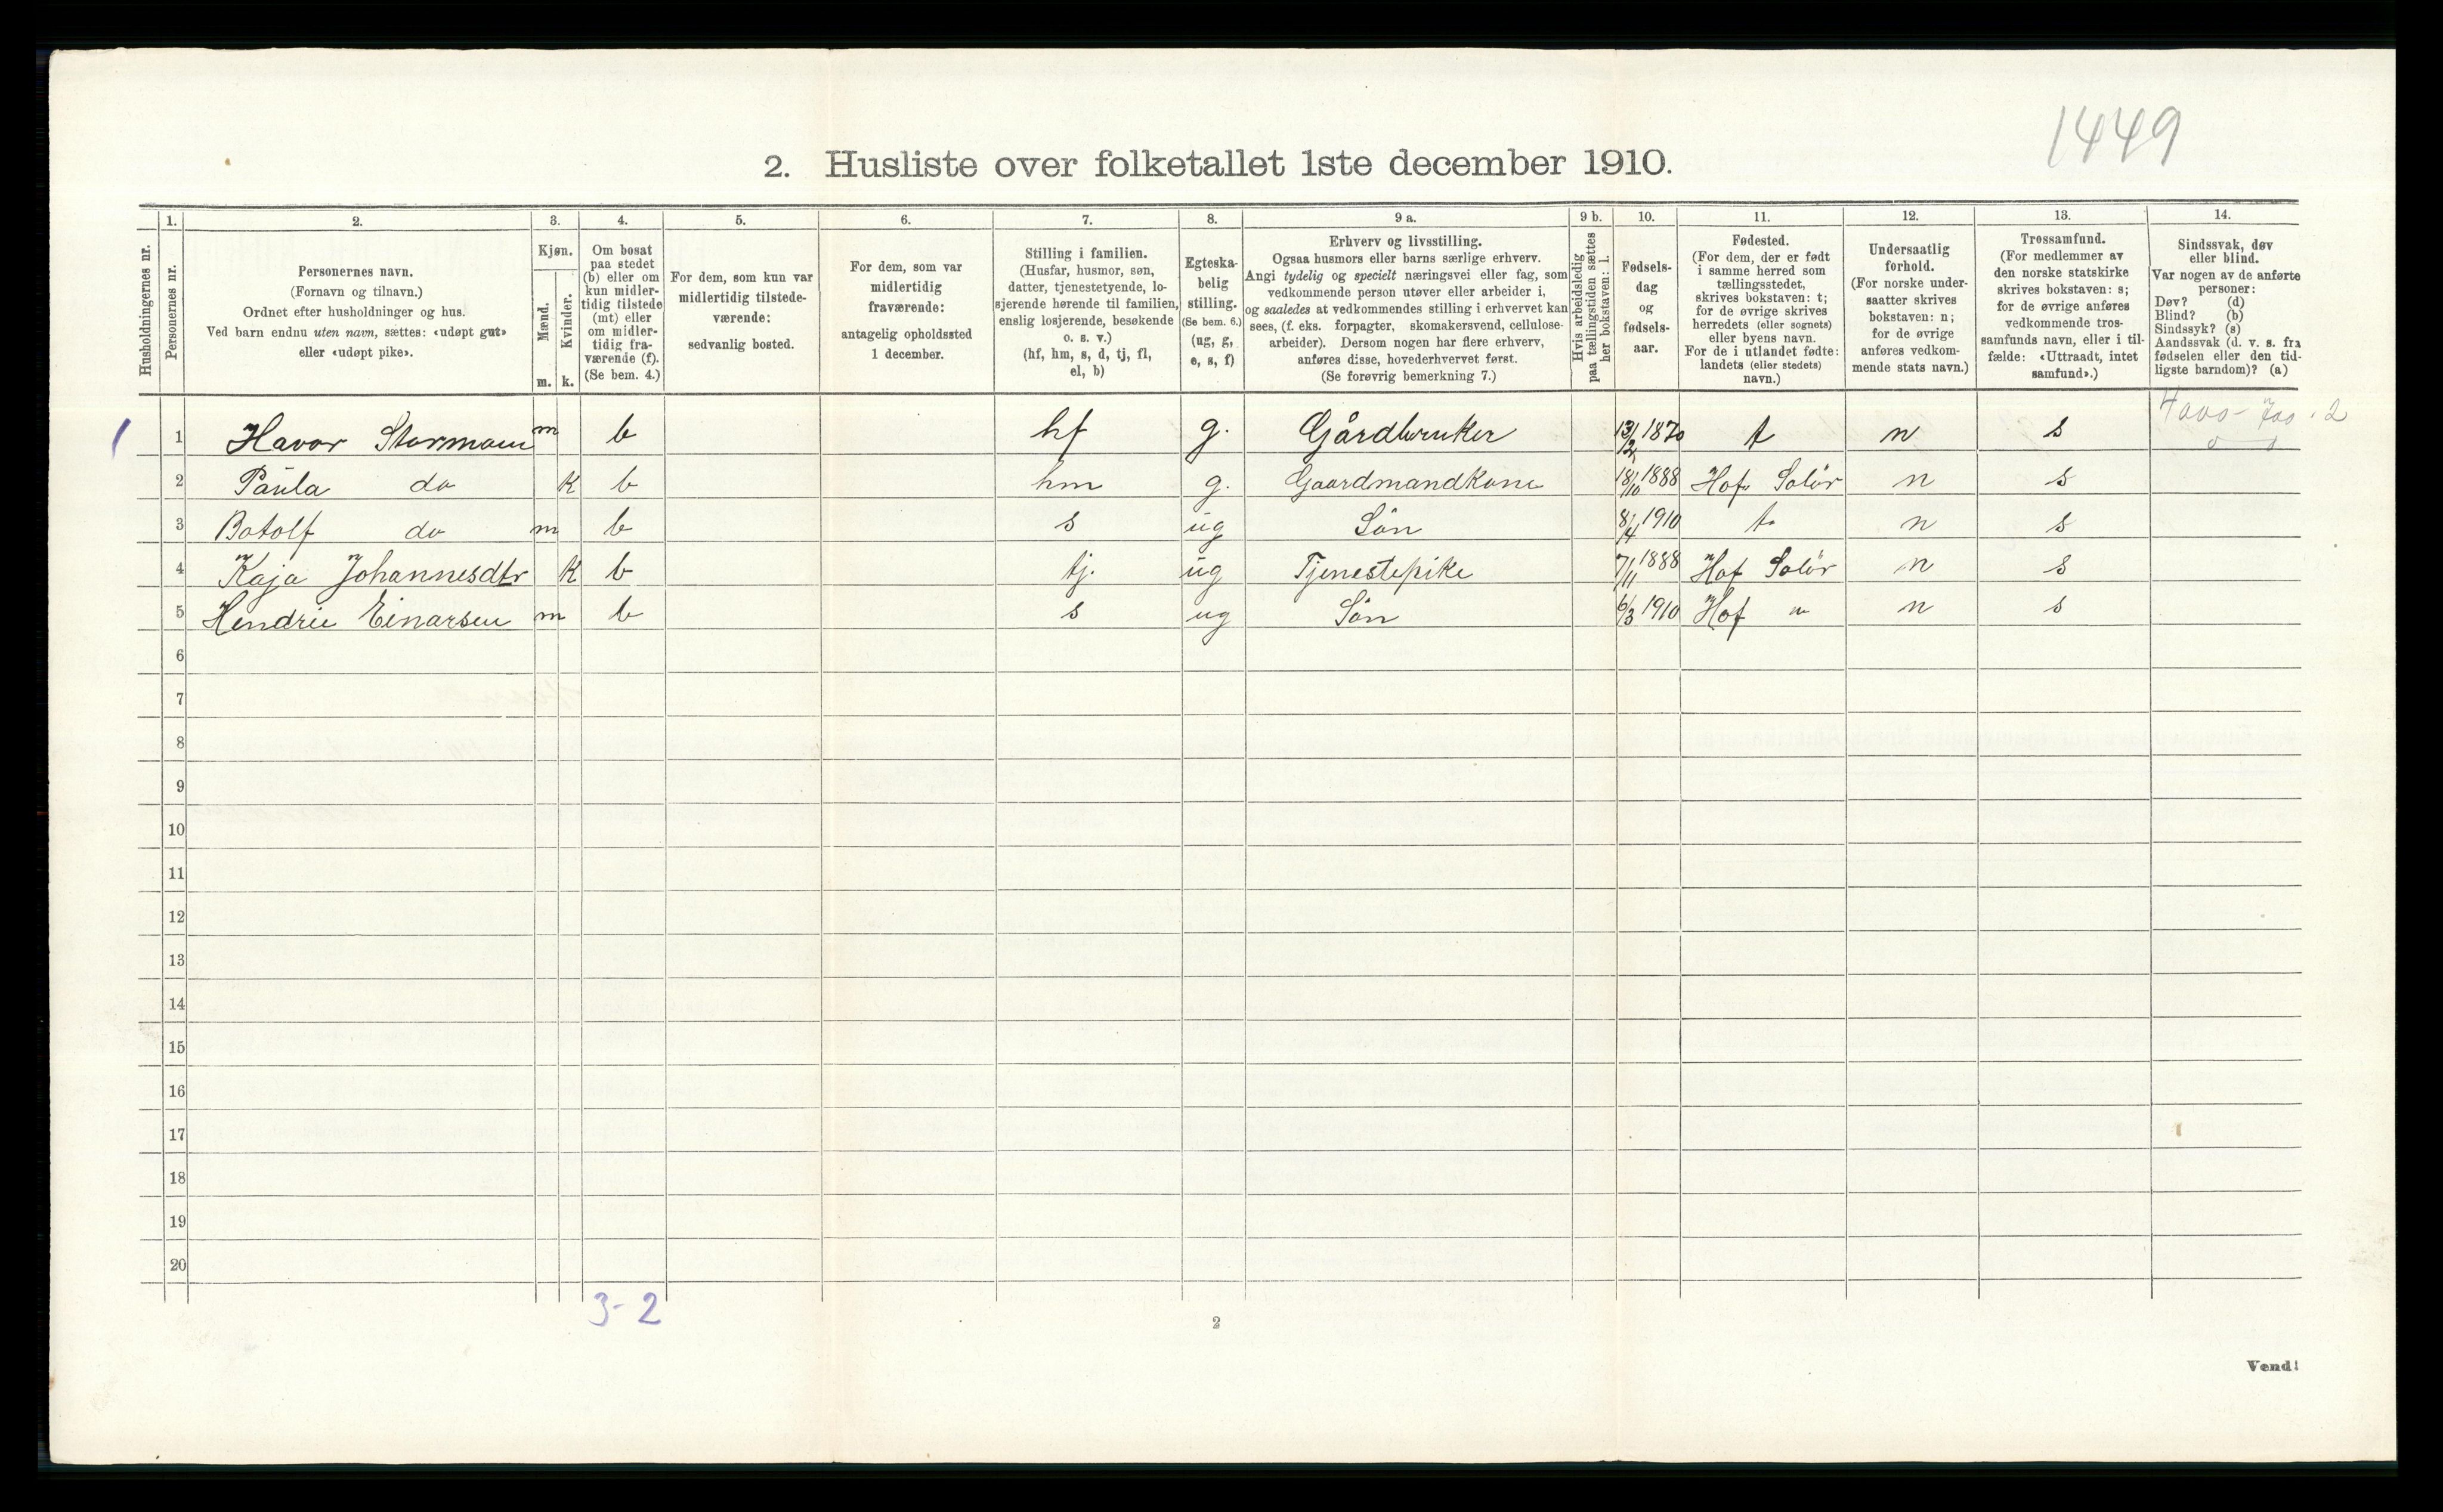 1449
2. Husliste over folketallet 1ste december 1910.
Husholdningernes nr.
1. Personernes nr.
2. Personernes navn.
(Fornavn og tilnavn.)
Ordnet efter husholdninger og hus.
Ved barn endnu uten navn, sættes: «udøpt gut»
eller «udøpt pike».
3. Kjøn.
Mænd. m.
Kvinder. k.
4. Om bosat
paa stedet
(b) eller om
kun midler-
tidig tilstede
(mt) eller
om midler-
tidig fra-
værende (f).
(Se bem. 4.)
5. For dem, som kun var
midlertidig tilstede-
værende:
sedvanlig bosted.
6. For dem, som var
midlertidig
fraværende:
antagelig opholdssted
1 december.
7. Stilling i familien.
(Husfar, husmor, søn,
datter, tjenestetyende, lo-
sjerende hørende til familien,
enslig losjerende, besøkende
o. s. v.)
(hf, hm, s, d, tj, fl,
el, b)
8. Egteska-
belig
stilling.
(Se bem. 6.)
(ug, g,
e, s, f)
9 a. Erhverv og livsstilling.
Ogsaa husmors eller barns særlige erhverv.
Angi tydelig og specielt næringsvei eller fag, som
vedkommende person utøver eller arbeider i,
og saaledes at vedkommendes stilling i erhvervet kan
sees, (f. eks. forpagter, skomakersvend, cellulose-
arbeider). Dersom nogen har flere erhverv,
anføres disse, hovederhvervet først.
(Se forøvrig bemerkning 7.)
9 b. Hvis arbeidsledig
paa tællingstiden sættes
her bokstaven: l.
10. Fødsels-
dag
og
fødsels-
aar.
11. Fødested.
(For dem, der er født
i samme herred som
tællingsstedet,
skrives bokstaven: t;
for de øvrige skrives
herredets (eller sognets)
eller byens navn.
For de i utlandet fødte:
landets (eller stedets)
navn.)
12. Undersaatlig
forhold.
(For norske under-
saatter skrives
bokstaven: n;
for de øvrige
anføres vedkom-
mende stats navn.)
13. Trossamfund.
(For medlemmer av
den norske statskirke
skrives bokstaven: s;
for de øvrige anføres
vedkommende tros-
samfunds navn, eller i til-
fælde: «Uttraadt, intet
samfund».)
14. Sindssvak, døv
eller blind.
Var nogen av de anførte
personer:
Døv? (d)
Blind? (b)
Sindssyk? (s)
Aandssvak (d. v. s. fra
fødselen eller den tid-
ligste barndom)? (a)
1 Havor Stormoen m b hf g. Gårdbruker 13/12 1870 t n s
2 Paula do K b hm g. Gaardmandkone 18/10 1888 Hof Solör n s
3 Botolf do m b s ug Sön 8/4 1910 t n s
4 Kaja Johannesdtr K b tj. ug Tjenestepike 7/11 1888 Hof Solör n s
5 Hendrie Einarsen m b s ug Sön 6/3 1910 Hof " n s
6
7
8
9
10
11
12
13
14
15
16
17
18
19
20
3-2
2
Vend!